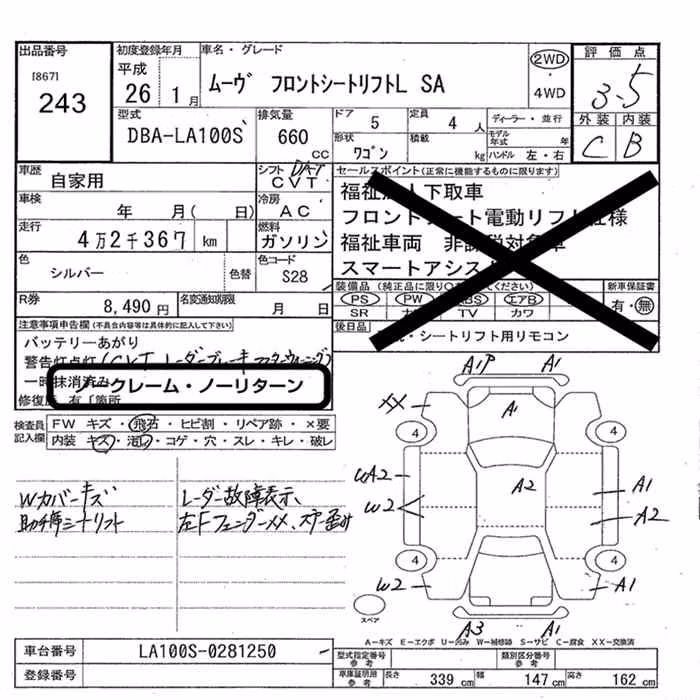 出品番号
[867]
243
初度登録年月
平成
26 1月
車名・グレード
ムーヴ フロントシートリフトL SA
2WD
・
4WD
評価点
3.5
外装 内装
C B
型式
DBA-LA100S
排気量
660
cc
ドア 5
定員 4 人
形状 ワゴン
積載 kg
ディーラー・並行
モデル年式 年
ハンドル 左・右
車歴
自家用
シフト
DAT
CVT
車検
年 月( 日)
冷房
AC
走行
4万2千367 km
燃料
ガソリン
色
シルバー
色替
色コード
S28
R券
8,490円
名変通知期限
月 日
セールスポイント(正常に機能するものに限ります)
福祉 下取車
フロント ート電動リフト仕様
福祉車両 非課税対象車
スマートアシス
装備品(純正品に限り ください)
PS PW ABS エアB
SR TV カワ
新車保証書
有・無
後日品
・シートリフト用リモコン
注意事項申告欄(不具合内容等は具体的に記入して下さい)
バッテリーあがり
警告灯点灯(CVT レーダーブレーキ
一時抹消済み
ノークレーム・ノーリターン
修復歴 有 箇所
検査員記入欄
FW キズ・飛石・ヒビ割・リペア跡・×要
内装 キズ・汚レ・コゲ・穴・スレ・キレ・破レ
Wカバーキズ
助手席シートリフト
レーダー故障表示、
左Fフェンダーメメ、ステー歪み
A1P A1
XX A1
4 4
WA2 A2 A1
W2 A2
4 4
W2 A1
スペア
A3 A1
A−キズ E−エクボ U−凹み W−補修跡 S−サビ C−腐食 XX−交換済
車台番号 LA100S-0281250
登録番号
型式指定番号
参考
類別区分番号
参考
車庫証明用
参考
長さ 339 cm 幅 147 cm 高さ 162 cm